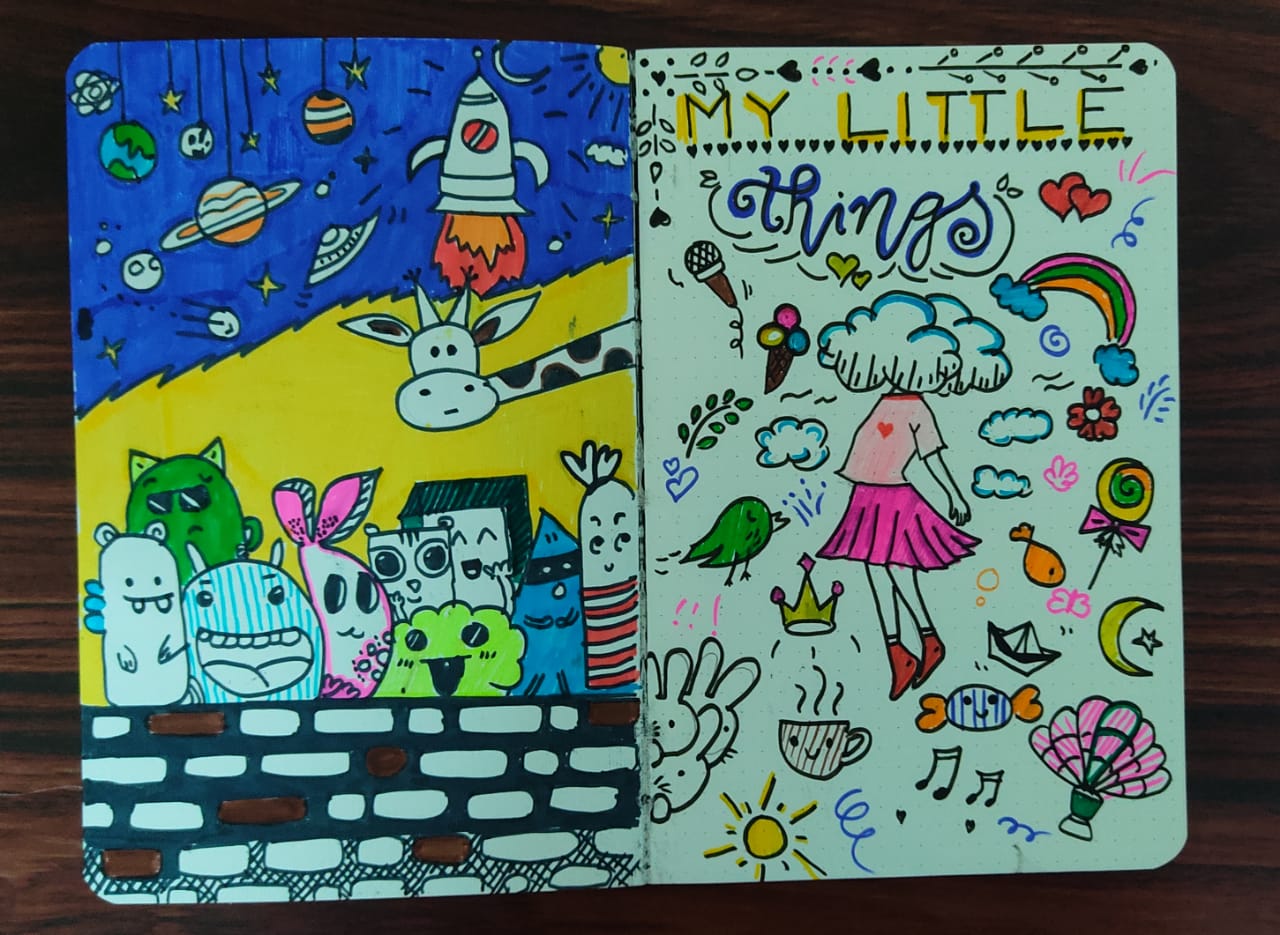 MY LITTLE
things